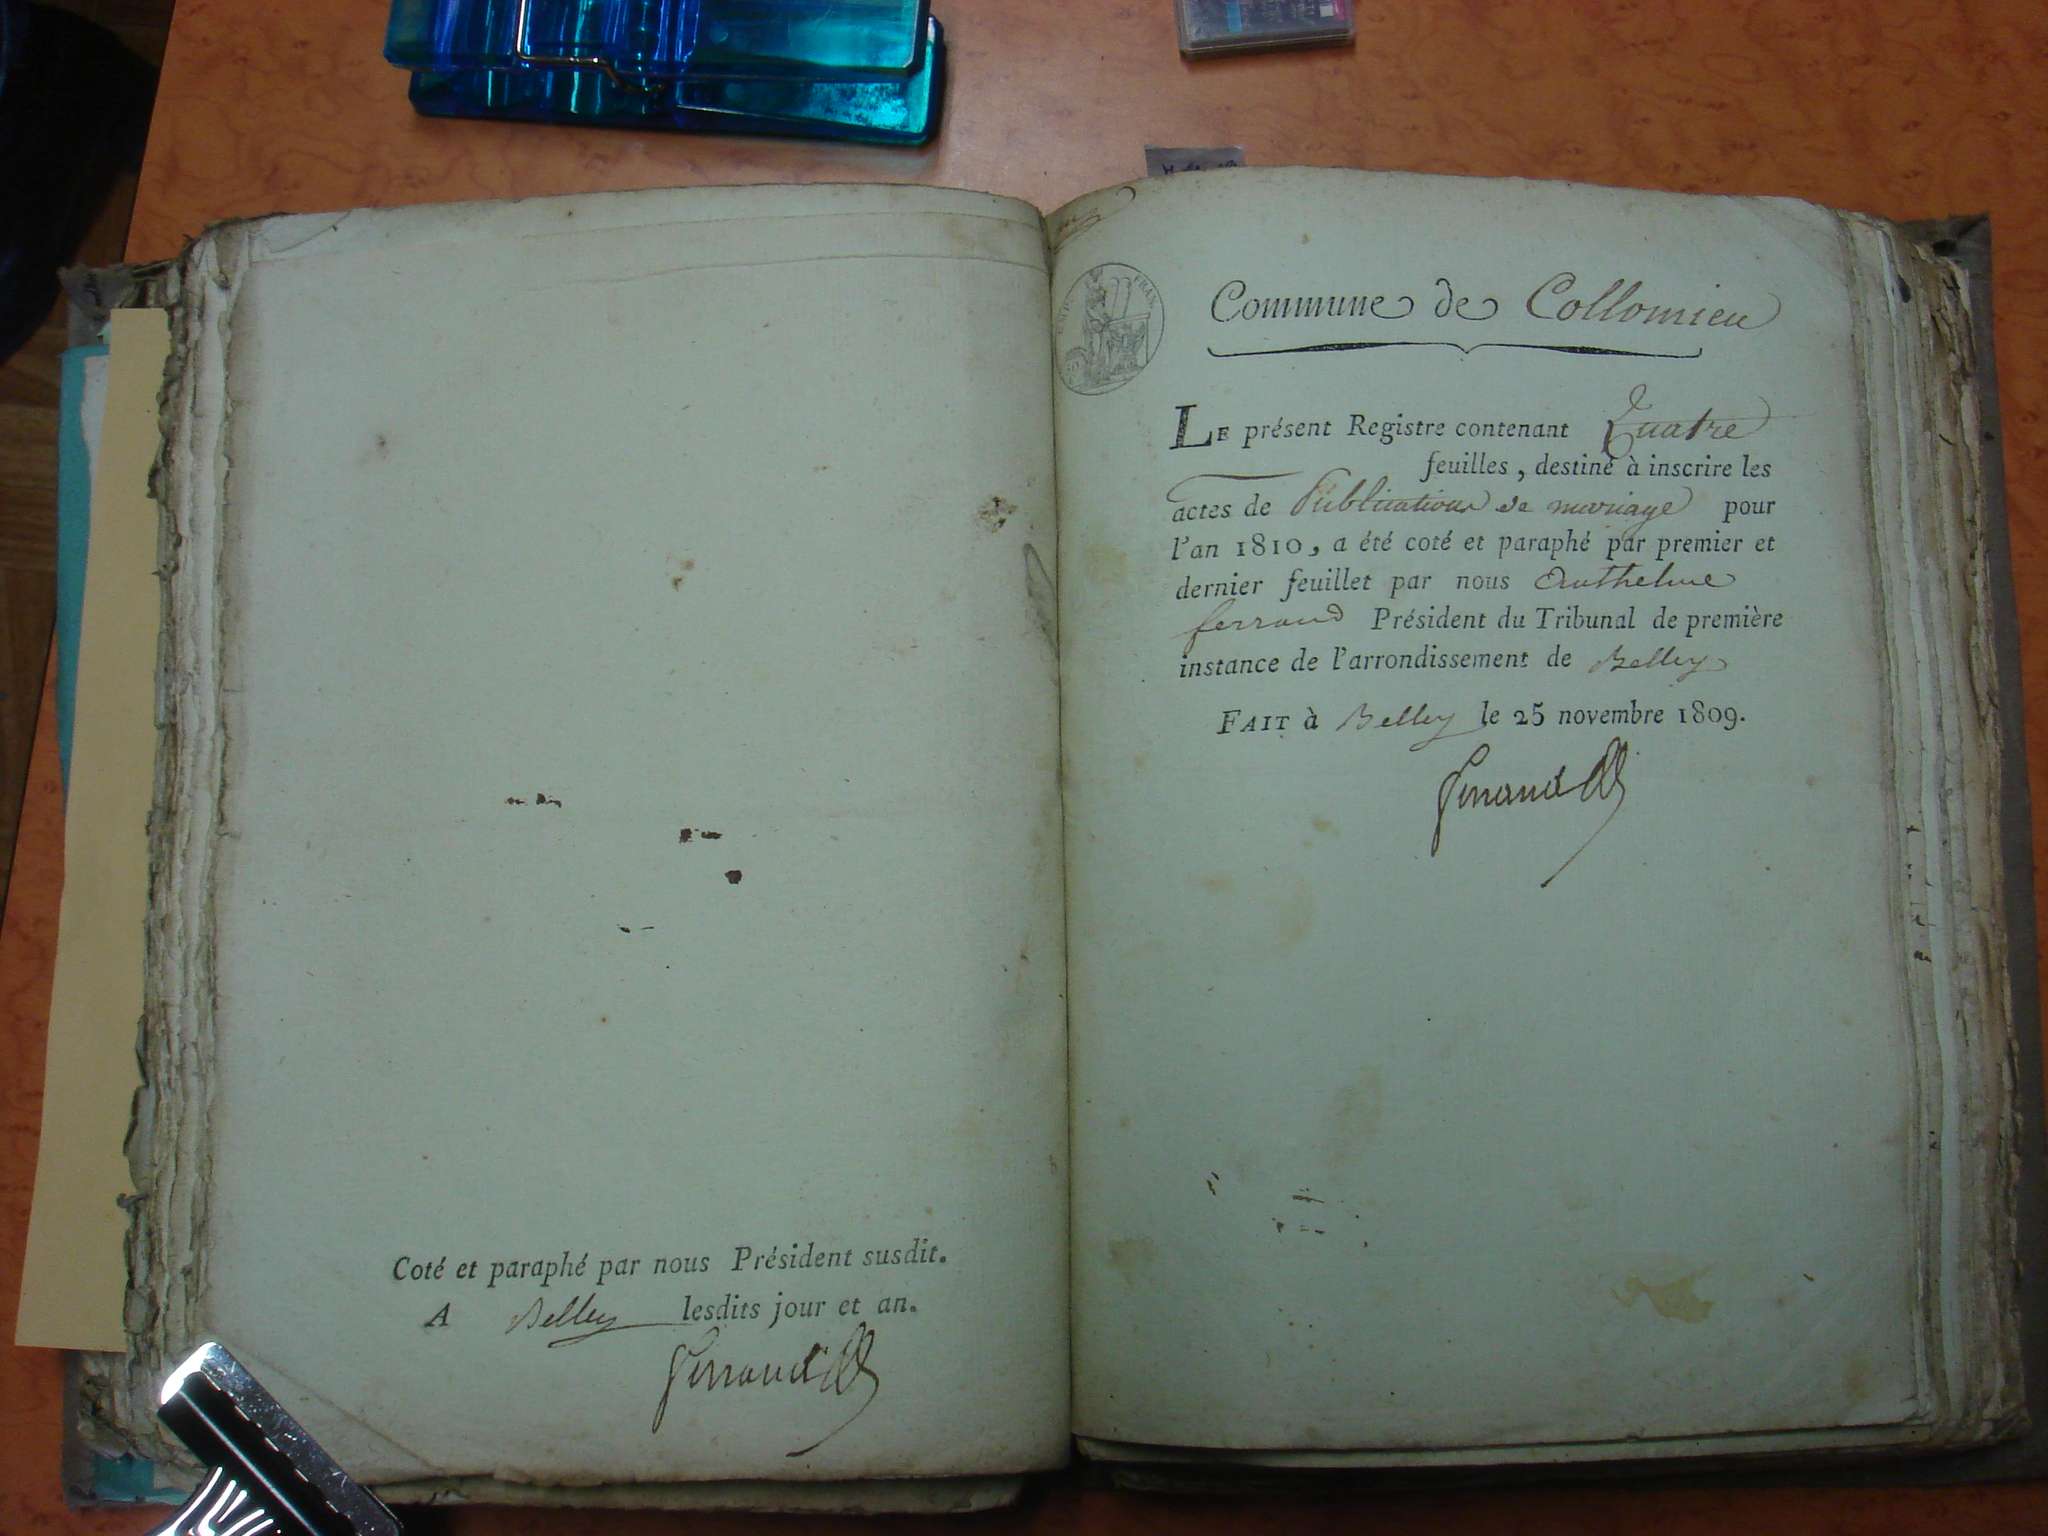 Coté et paraphé par nous Président susdit.
A Belley lesdits jour et an.
Ferrand
EMP. FRAN.
Commune de Collomieu
LE présent Registre contenant Quatre
feuilles, destiné à inscrire les
actes de Publications de mariage pour
l'an 1810, a été coté et paraphé par premier et
dernier feuillet par nous Anthelme
ferrand Président du Tribunal de première
instance de l'arrondissement de Belley
FAIT à Belley le 25 novembre 1809.
Ferrand